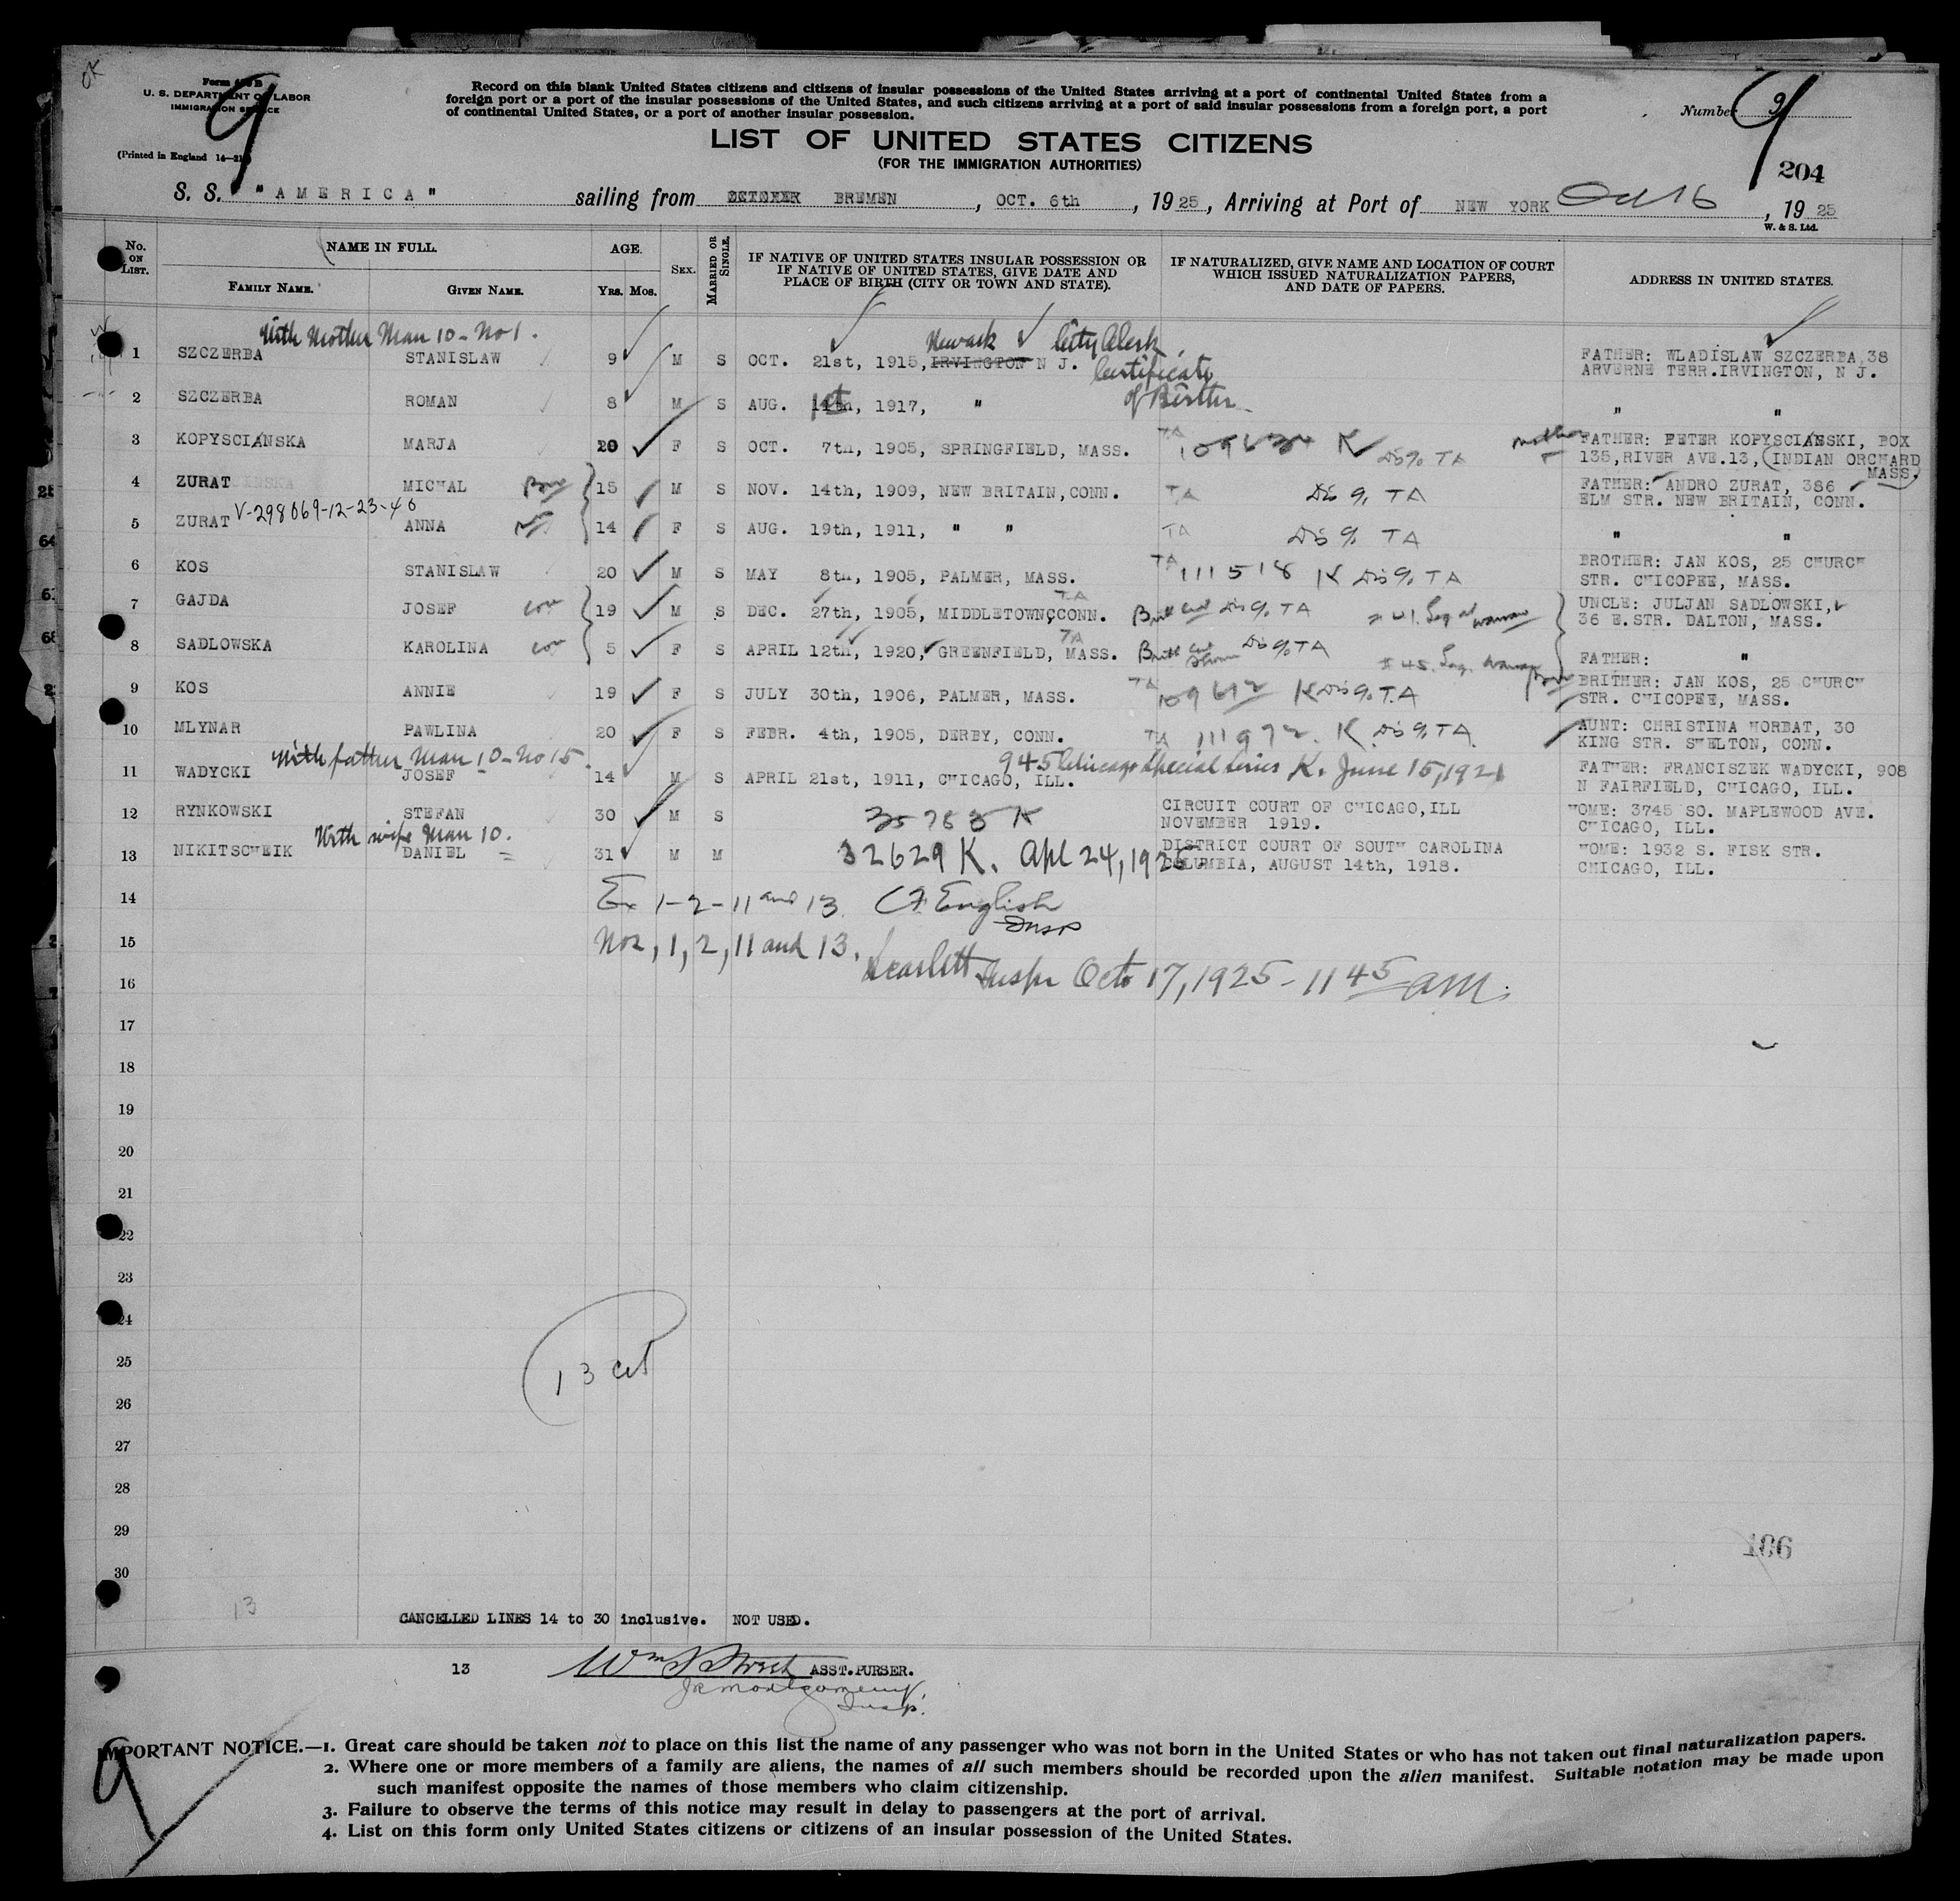 OK
Form 630 B
U. S. DEPARTMENT OF LABOR
IMMIGRATION SERVICE
(Printed in England 16—21)
9
Record on this blank United States citizens and citizens of insular possessions of the United States arriving at a port of continental United States from a
foreign port or a port of the insular possessions of the United States, and such citizens arriving at a port of said insular possessions from a foreign port, a port
of continental United States, or a port of another insular possession.
Number 9
9
204
LIST OF UNITED STATES CITIZENS
(FOR THE IMMIGRATION AUTHORITIES)
S. S. "AMERICA" sailing from BREMEN, OCT. 6th, 1925, Arriving at Port of NEW YORK Oct 16, 1925
W. & S. Ltd.
No. ON LIST. NAME IN FULL. FAMILY NAME. GIVEN NAME. AGE. YRS. MOS. SEX. MARRIED OR SINGLE. IF NATIVE OF UNITED STATES INSULAR POSSESSION OR IF NATIVE OF UNITED STATES, GIVE DATE AND PLACE OF BIRTH (CITY OR TOWN AND STATE). IF NATURALIZED, GIVE NAME AND LOCATION OF COURT WHICH ISSUED NATURALIZATION PAPERS, AND DATE OF PAPERS. ADDRESS IN UNITED STATES.
With Mother Man 10 - No 1. Newark City Clerk
1 SZCZERBA STANISLAW 9 M S OCT. 21st, 1915, IRVINGTON N J. Certificate FATHER: WLADISLAW SZCZERBA 38
ARVERNE TERR.IRVINGTON, N J.
2 SZCZERBA ROMAN 8 M S AUG. 14th, 1st 1917, " of Birth " "
3 KOPYSCIANSKA MARJA 20 F S OCT. 7th, 1905, SPRINGFIELD, MASS. TA 109634 K Dis 9. TA mother FATHER: PETER KOPYSCIANSKI, BOX
135,RIVER AVE.13, (INDIAN ORCHARD
MASS.)
4 ZURAT MICHAL Bro 15 M S NOV. 14th, 1909, NEW BRITAIN,CONN. TA Dis 9. TA FATHER: ANDRO ZURAT, 386
ELM STR. NEW BRITAIN, CONN.
V-298069-12-23-40
5 ZURAT ANNA 14 F S AUG. 19th, 1911, " " TA Dis 9. TA " "
6 KOS STANISLAW 20 M S MAY 8th, 1905, PALMER, MASS. TA 111518 K Dis 9. TA BROTHER: JAN KOS, 25 CHURCH
STR. CHICOPEE, MASS.
7 GAJDA JOSEF cou 19 M S DEC. 27th, 1905, MIDDLETOWNÇCONN. TA Dis 9. TA UNCLE: JULJAN SADLOWSKI,
36 E.STR. DALTON, MASS.
8 SADLOWSKA KAROLINA cou 5 F S APRIL 12th, 1920, GREENFIELD, MASS. TA Dis 9. TA FATHER: "
9 KOS ANNIE 19 F S JULY 30th, 1906, PALMER, MASS. TA 109692 K Dis 9. TA Bro BRITHER: JAN KOS, 25 CHURCH
STR. CHICOPEE, MASS.
10 MLYNAR PAWLINA 20 F S FEBR. 4th, 1905, DERBY, CONN. TA 111972. K Dis 9. TA AUNT: CHRISTINA HORBAT, 30
KING STR. SHELTON, CONN.
With father Man 10 - No 15. 945 Chicago Special Series K. June 15, 1921
11 WADYCKI JOSEF 14 M S APRIL 21st, 1911, CHICAGO, ILL. FATHER: FRANCISZEK WADYCKI, 908
N FAIRFIELD, CHICAGO, ILL.
12 RYNKOWSKI STEFAN 30 M S 35783 K CIRCUIT COURT OF CHICAGO,ILL
NOVEMBER 1919. HOME: 3745 SO. MAPLEWOOD AVE.
CHICAGO, ILL.
With wife Man 10.
13 NIKITSCHEIK DANIEL 31 M M 32629 K. Apl 24, 1925 DISTRICT COURT OF SOUTH CAROLINA
COLUMBIA, AUGUST 14th, 1918. HOME: 1932 S. FISK STR.
CHICAGO, ILL.
14 Ex 1-2-11 and 13 English
Insp
15 Nos, 1, 2, 11 and 13.
Scarlett Inspr Octo 17, 1925 - 11 45 am.
16
17
18
19
20
21
22
23
24
13
25
26
27
28
29
186
30
13
CANCELLED LINES 14 to 30 inclusive. NOT USED.
13 ASST.PURSER.
JR Montgomery
Insp.
9
IMPORTANT NOTICE.—1. Great care should be taken not to place on this list the name of any passenger who was not born in the United States or who has not taken out final naturalization papers.
2. Where one or more members of a family are aliens, the names of all such members should be recorded upon the alien manifest. Suitable notation may be made upon
such manifest opposite the names of those members who claim citizenship.
3. Failure to observe the terms of this notice may result in delay to passengers at the port of arrival.
4. List on this form only United States citizens or citizens of an insular possession of the United States.